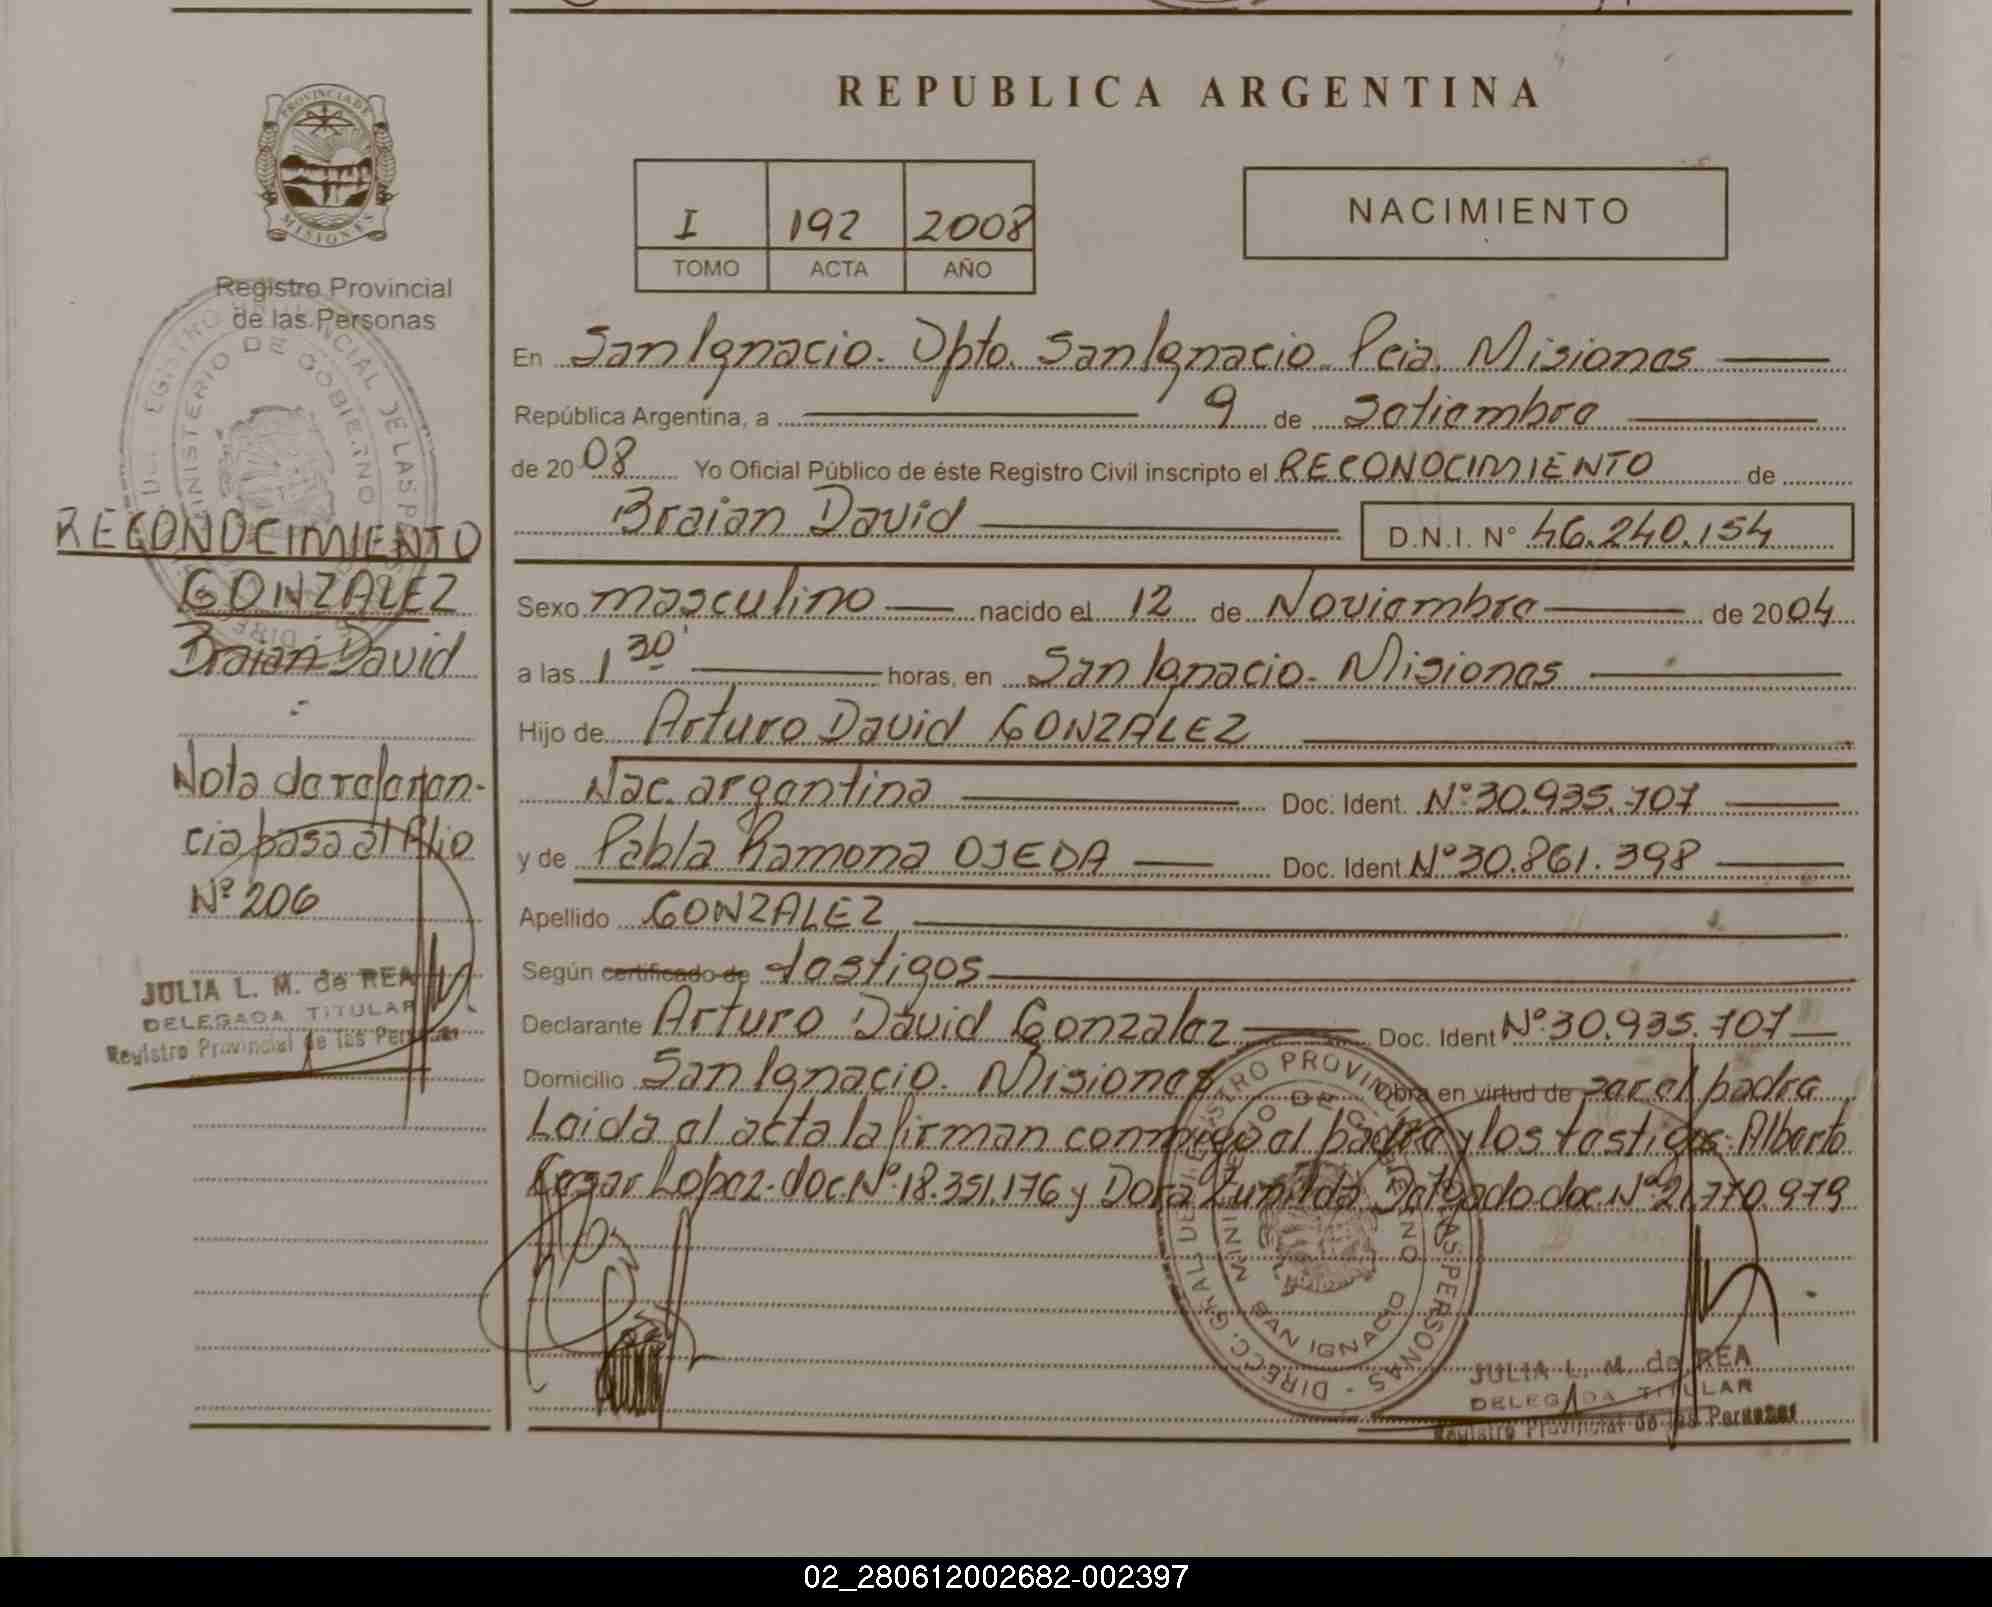 REPUBLICA ARGENTINA
PROVINCIA DE
MISIONES
Registro Provincial
de las Personas
I 192 2008
TOMO ACTA AÑO
NACIMIENTO
En San Ignacio. Dpto. San Ignacio. Pcia. Misiones
República Argentina, a 9 de Setiembre
de 2008 Yo Oficial Público de éste Registro Civil inscripto el RECONOCIMIENTO de
Braian David D.N.I. N° 46.240.154
Sexo masculino nacido el 12 de Noviembre de 2004
a las 1 30' horas, en San Ignacio. Misiones
Hijo de Arturo David GONZALEZ
Nac. argentina Doc. Ident. N° 30.935.707
y de Pabla Ramona OJEDA Doc. Ident. N° 30.861.398
Apellido GONZALEZ
Según certificado de testigos
Declarante Arturo David Gonzalez Doc. Ident N° 30.935.707
Domicilio San Ignacio. Misiones Obra en virtud de ser el padre
Leida el acta la firman conmigo el padre y los testigos: Alberto
Cesar Lopez. doc. N° 18.351.176 y Dora Zunilda Delgado doc. N° 21.770.979
RECONOCIMIENTO
GONZALEZ
Braian David
Nota de referen-
cia pasa al folio
N° 206
JULIA L. M. de REA
DELEGADA TITULAR
Registro Provincial de las Personas
DIRECC. GRAL. DEL REGISTRO PROVINCIAL DE LAS PERSONAS
MINISTERIO DE GOBIERNO
SAN IGNACIO
JULIA L. M. de REA
DELEGADA TITULAR
Registro Provincial de las Personas
02_280612002682-002397